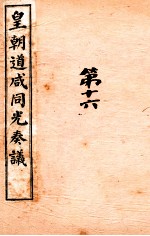 皇朝道咸同光奏議
第十六